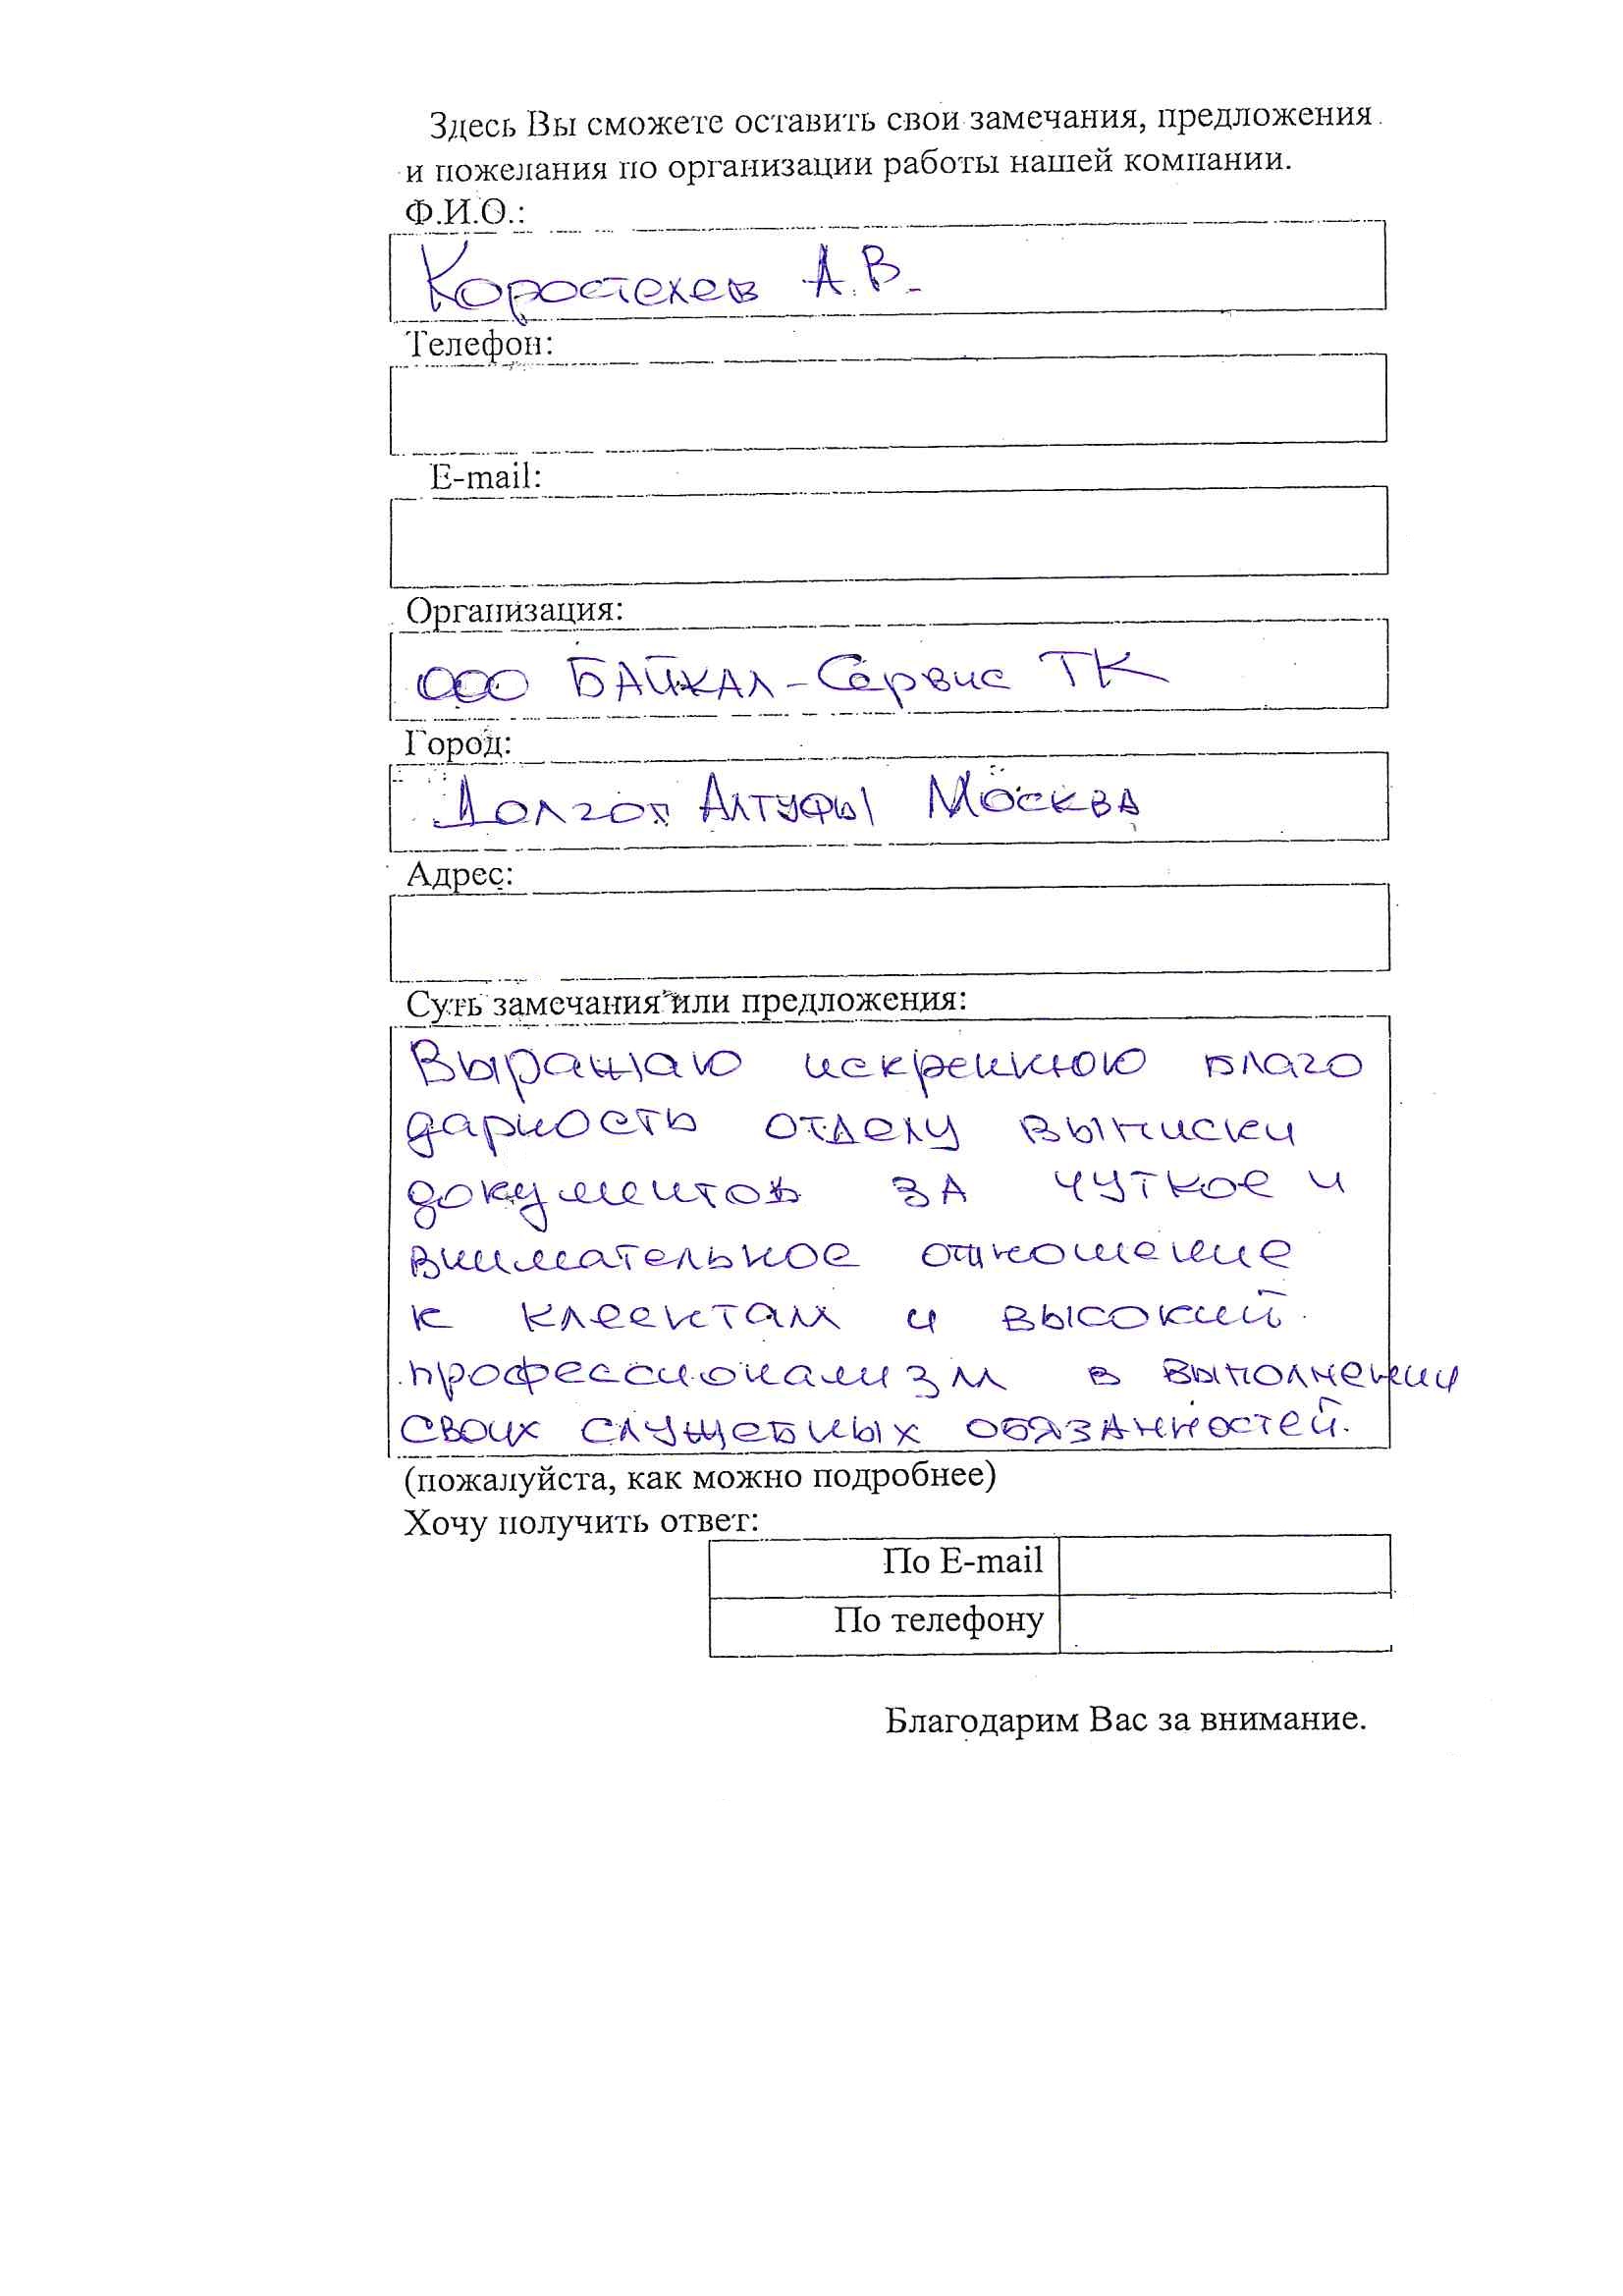 Здесь Вы сможете оставить свои замечания, предложения
и пожелания по организации работы нашей компании.
Ф.И.О.:
Коростехев А.В.
Телефон:
E-mail:
Организация:
ООО БАЙКАЛ-Сервис ТК
Город:
Долгоп Алтуфы Москва
Адрес:
Суть замечания или предложения:
Выражаю искреннюю благо
дарность отделу выписки
документов за чуткое и
внимательное отношение
к клеентам и высокий
профессионализм в выполнении
своих служебных обязанностей.
(пожалуйста, как можно подробнее)
Хочу получить ответ:
По E-mail
По телефону
Благодарим Вас за внимание.